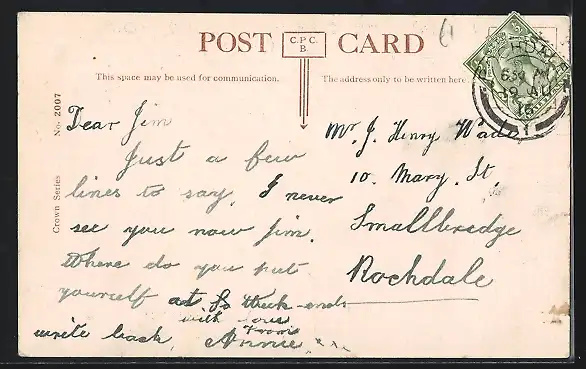 POST CARD
C.P.C.
B.
This space may be used for communication.
The address only to be written here.
Crown Series No. 2007
Dear Jim
Just a few
lines to say, I never
see you now Jim.
Where do you put
yourself at Week-ends
write back,
with love
from
Annie xxx
Mr. J. Henry Wade
10. Mary. St,
Smallbridge
Rochdale
6
HDALE
630 AM
19 AU
15